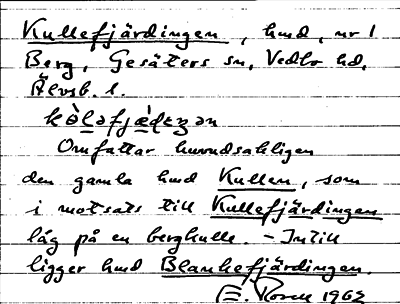 Kullefjärdingen, hmd, nr 1
Berg, Gesäters sn, Vedbo hd,
Älvsb. l.
Omfattar huvudsakligen
den gamla hmd Kullen, som
i motsats till Kullefjärdingen
låg på en bergkulle. - Intill
ligger hmd Blankefjärdingen.
E. Rosell 1962